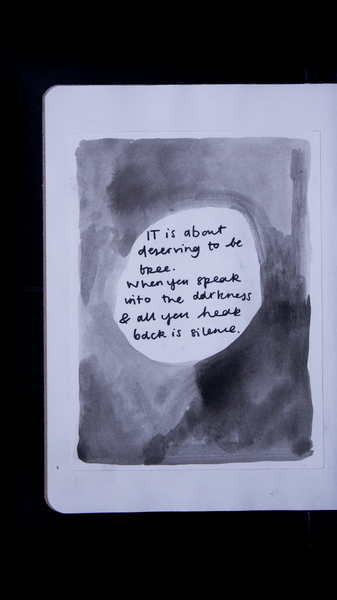 IT is about
deserving to be
free.
When you speak
into the darkness
& all you hear
back is silence.